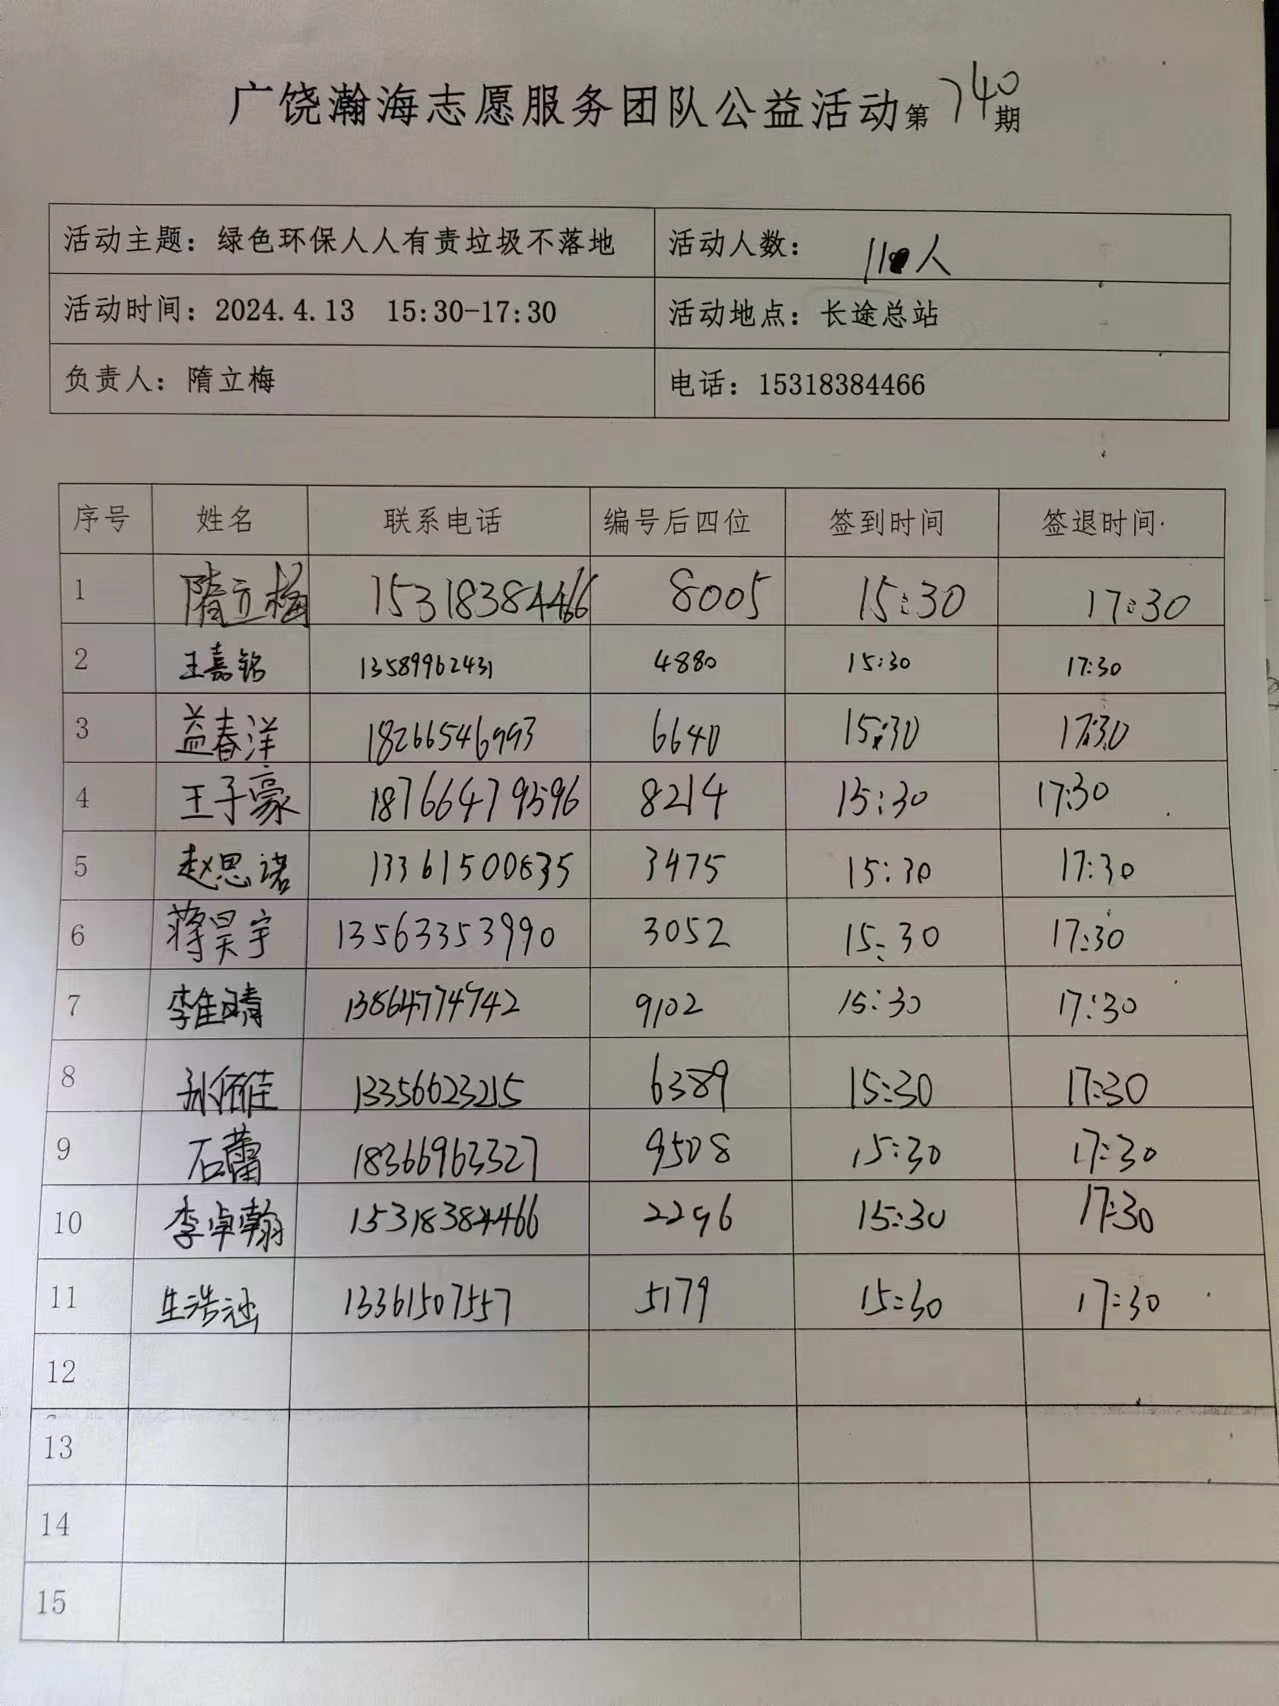 广饶瀚海志愿服务团队公益活动第740期
活动主题：绿色环保人人有责垃圾不落地 活动人数：11人
活动时间：2024.4.13 15:30-17:30 活动地点：长途总站
负责人：隋立梅 电话：15318384466
序号 姓名 联系电话 编号后四位 签到时间 签退时间
1 隋立梅 15318384466 8005 15:30 17:30
2 王嘉铭 13589962431 4880 15:30 17:30
3 益春洋 18266546993 6640 15:30 17:30
4 王子豪 18766479596 8214 15:30 17:30
5 赵思诺 13361500835 3475 15:30 17:30
6 蒋昊宇 13563353990 3052 15:30 17:30
7 李佳晴 13864774742 9102 15:30 17:30
8 孙佰佳 13356623215 6389 15:30 17:30
9 石蕾 18366963327 9508 15:30 17:30
10 李卓翰 15318384466 2296 15:30 17:30
11 生浩 13361507557 5179 15:30 17:30
12
13
14
15